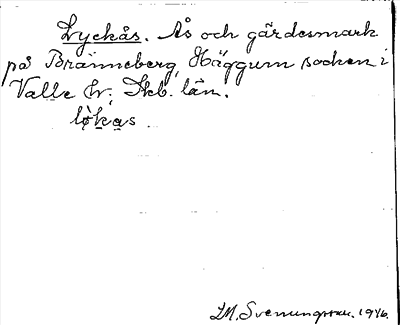 Lyckås. Ås och gärdesmark
på Bränneberg, Häggum socken i
Valle hr. Skb. län.
lø̀kas
LM. Svenungsson. 1946.